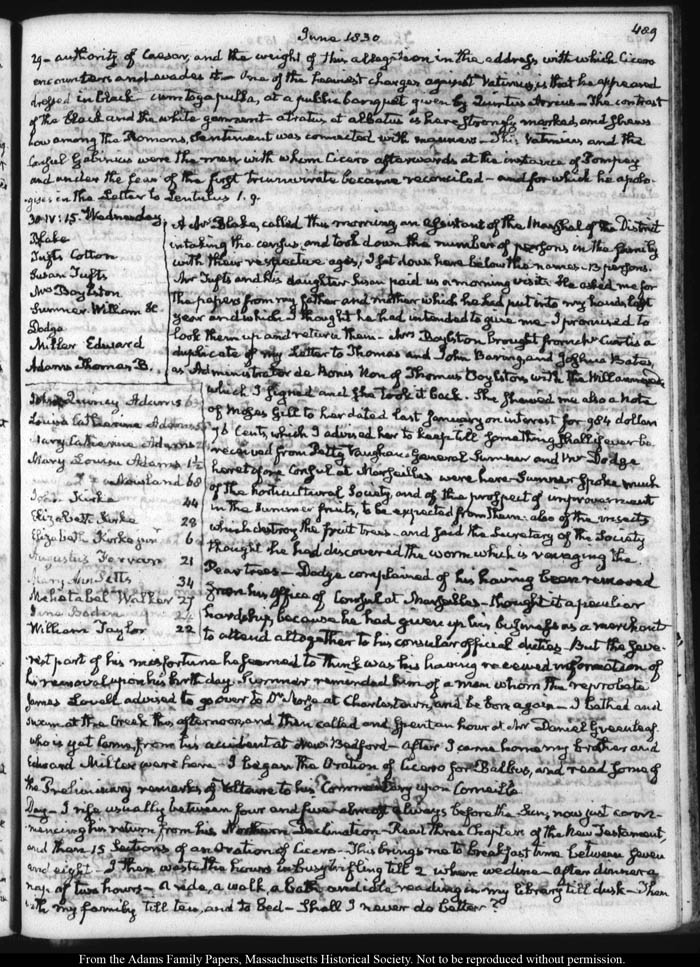 June 1830
489
29 - authority of Caesar, and the weight of this allegation in the address with which Cicero
encounters and evades it - One of the heaviest charges against Vatinius, is that he appeared
dressed in black cum toga pulla, at a public banquet given by Quintus Arrius - The contrast
of the black and the white garment - atratus at albatus is here strongly marked, and shews
how among the Romans, sentiment was connected with manners - This Vatinius and the
Consul Gabinius were the men with whom Cicero afterwards at the instance of Pompey
and under the fear of the first triumvirate became reconciled - and for which he apolo-
gises in the Letter to Lentulus 1. 9.
30 IV: 15. Wednesday
Blake
Tufts Cotton
Susan Tufts
Mrs Boylston
Sumner William H
Dodge
Miller Edward
Adams Thomas B.
A Mr Blake, called this morning an assistant of the Marshal of the District
in taking the census, and took down the number of persons in the family
with their respective ages, I set down here below the names - 13 persons.
Mr Tufts and his daughter Susan paid us a morning visit. He asked me for
the papers from my father and mother which he had put into my hands last
year and which I thought he had intended to give me - I promised to
look them up and return them - Mrs Boylston brought from Mr Curtis a
duplicate of my Letter to Thomas and John Baring, and Joshua Bates,
as Administrator de Bonis Non of Thomas Boylston with the Will annexed
John Quincy Adams 63
Louisa Catherine Adams 55
Mary Catherine Adams
Mary Louisa Adams 1½
Nowland 68
John Kirke 44
Elizabeth Kirke 28
Elizabeth Kirke junr 6
Augustus Fervan 21
Mary Ann Setts 34
Mehetabel Walker 27
William Taylor 22
which I signed and she took it back. She shewed me also a Note
of Moses Gill to her dated last January on interest for 984 dollars
76 Cents, which I advised her to keep till something shall if ever be
received from Patty Vaughan. General Sumner and Mr Dodge
heretofore Consul at Marseilles were here - Sumner spoke much
of the horticultural Society, and of the prospect of improvement
in the Summer fruits, to be expected from them: also of the insects
which destroy the fruit trees - and said the Secretary of the Society
thought he had discovered the worm which is ravaging the
Pear trees - Dodge complained of his having been removed
from his Office of Consul at Marseilles - thought it a peculiar
hardship, because he had given up his business as a merchant
to attend altogether to his consular official duties - But the seve-
rest part of his misfortune he seemed to think was his having received information of
his removal upon his birth day. Sumner reminded him of a man whom the reprobate
James Lovell advised to go over to Dr Morse at Charlestown, and be born again - I bathed and
swam at the Creek this afternoon, and then called and spent an hour at Mr Daniel Greenleaf
who is yet lame, from his accident at New Bedford - After I came home my brother and
Edward Miller were here - I began the Oration of Cicero for Balbus, and read some of
the Preliminary remarks of Voltaire to his Commentary upon Corneille
Day - I rise usually between four and five - almost always before the Sun, now just com-
mencing his return from his Northern Declination - Read three Chapters of the New Testament,
and then 15 Sections of an Oration of Cicero - This brings me to breakfast time between seven
and eight - I then waste the hours in busy trifling till 2 when we dine - after dinner a
nap of two hours - a ride, a walk, a bath and idle reading in my library till dusk - Then
with my family till ten, and to bed - Shall I never do better?
From the Adams Family Papers, Massachusetts Historical Society. Not to be reproduced without permission.